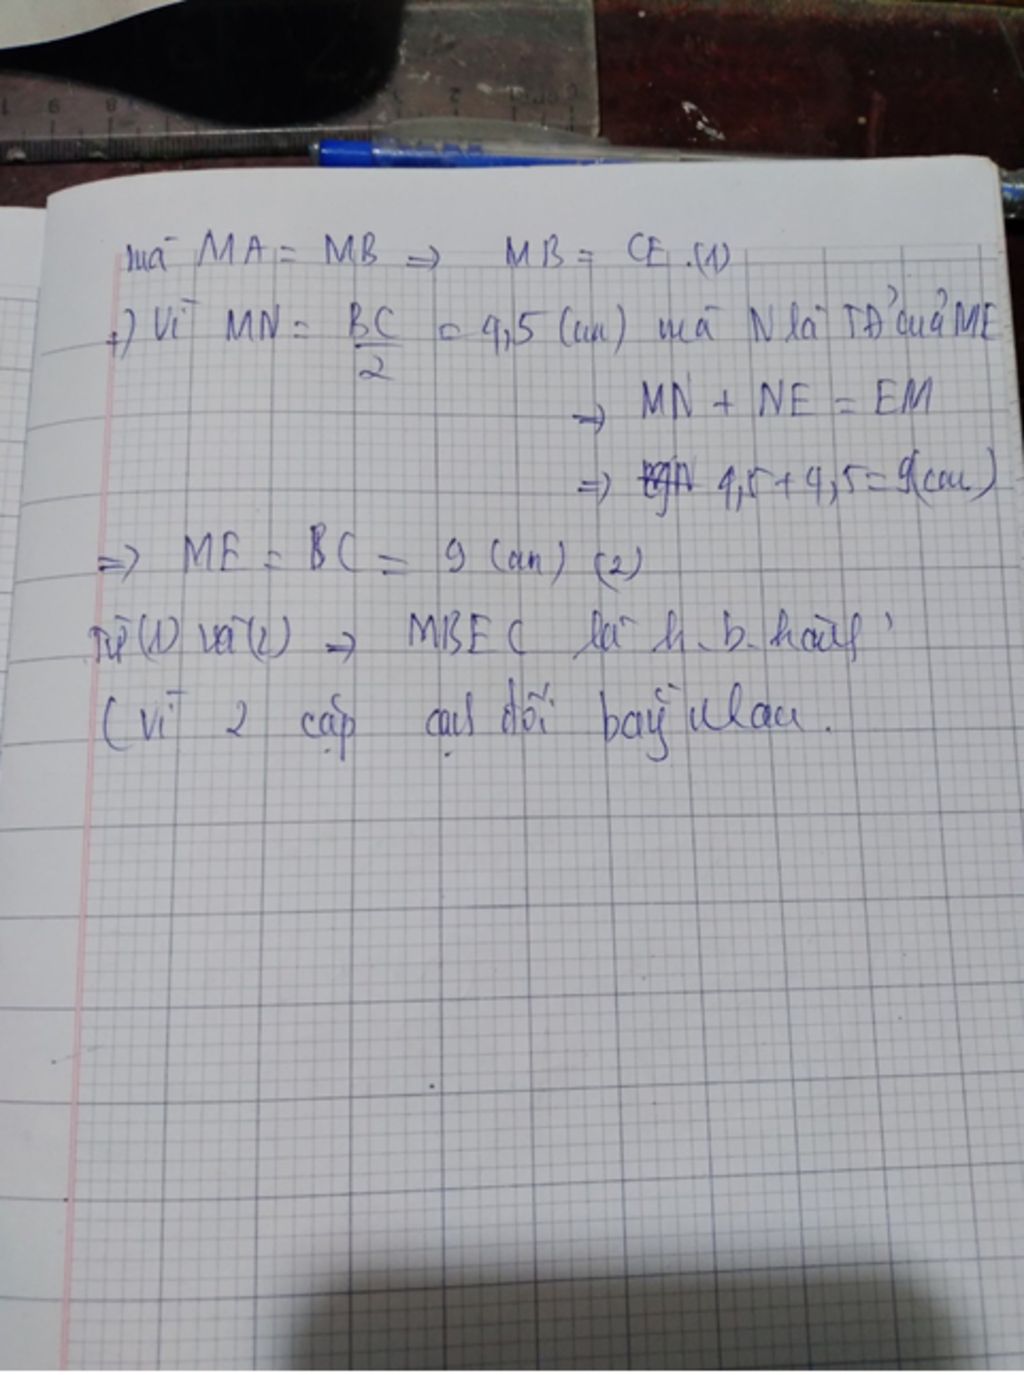 mà MA = MB => MB = CE. (1)
+) Vì MN = BC/2 = 4,5 (cm) mà N là TĐ của ME
=> MN + NE = EM
=> 4,5 + 4,5 = 9 (cm)
=> ME = BC = 9 (cm) (2)
Từ (1) và (2) => MBEC là h.b.hành
(vì 2 cặp cạnh đối bằng nhau.